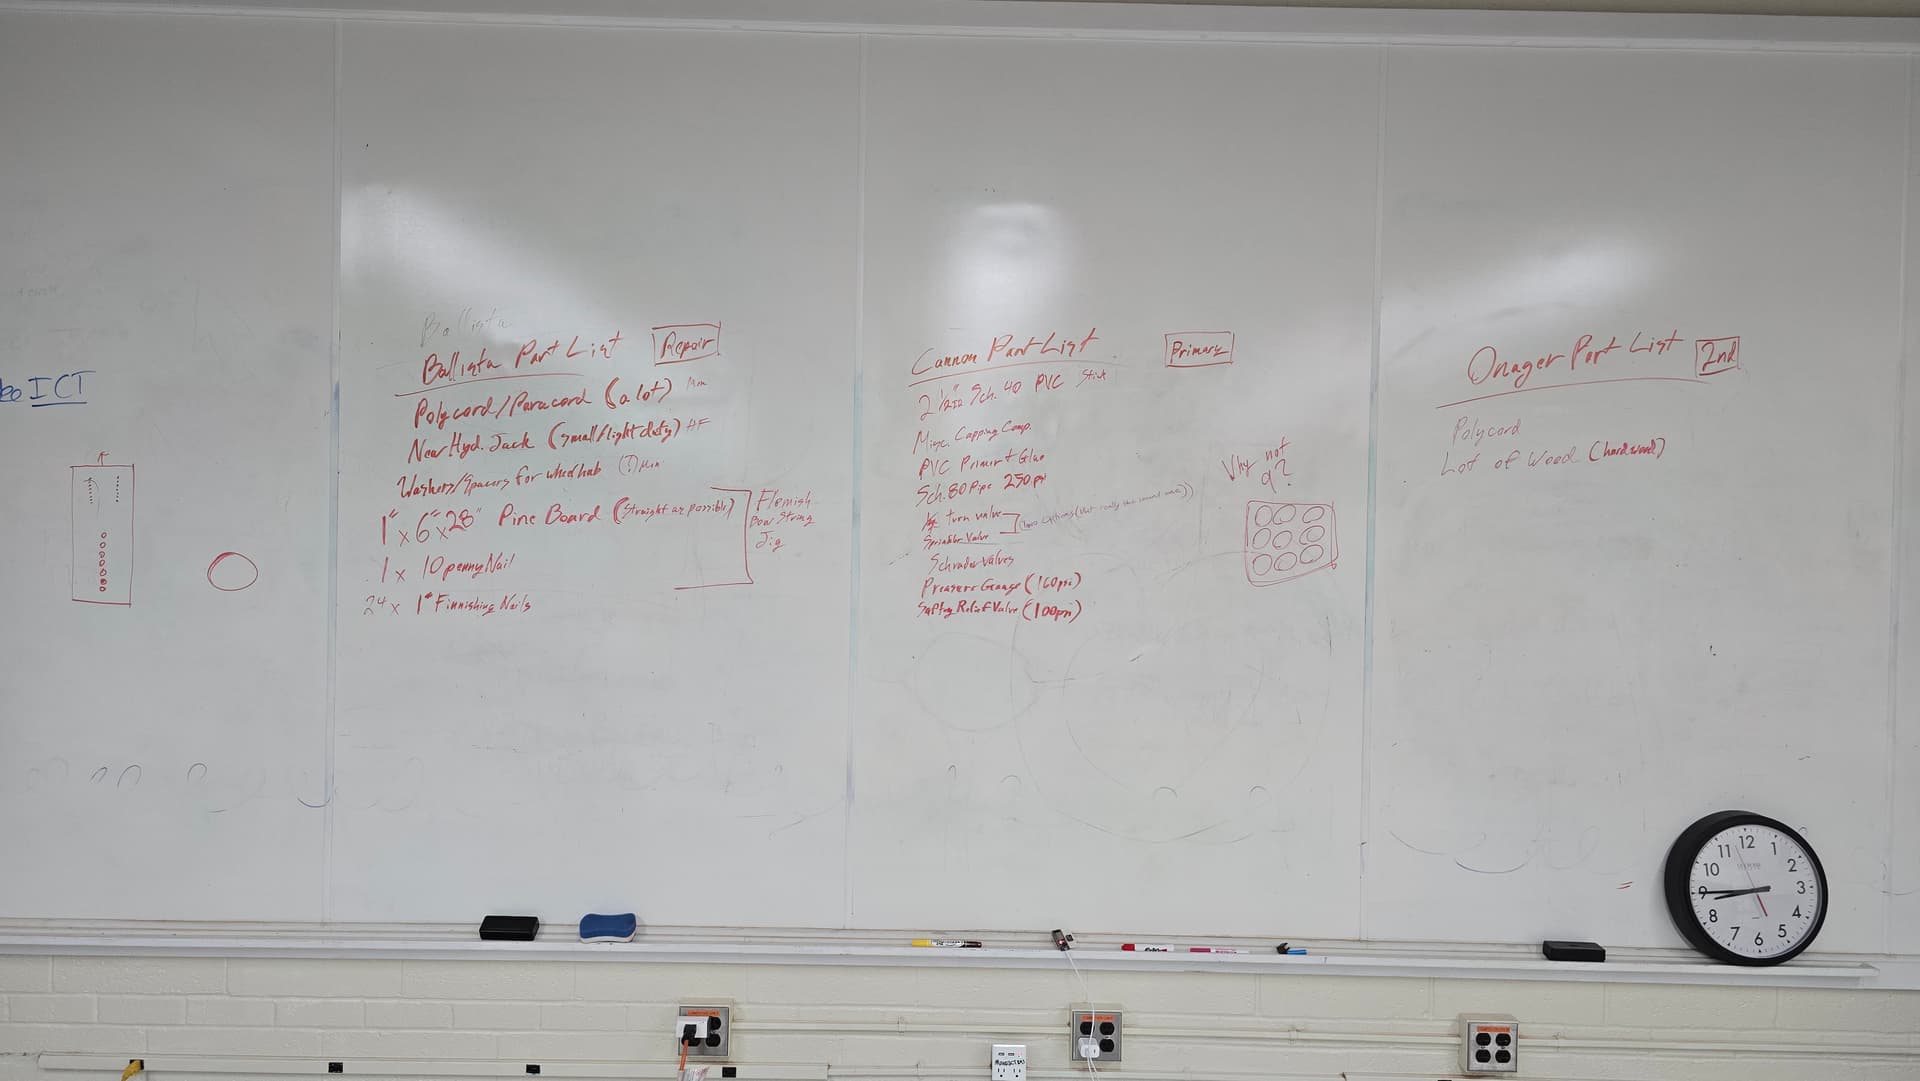 ICT
Ballista
Ballista Part List
Repair
Polycord/Paracord (a lot)
New Hyd. Jack (small/light duty) HF
Washers/Spacers for wheel hub (?)
1" x 6" x 28" Pine Board (straight as possible)
1 x 10 penny Nail
24 x 1" Finnishing Nails
Flemish
Bow String
Jig
Cannon Part List
Primary
2 1/2 in Sch. 40 PVC Stick
Misc. Capping Comp.
PVC Primer + Glue
Sch. 80 Pipe 250psi
turn valve
Sprinkler Valve
Schrader Valves
Pressure Gauge (160psi)
Saftey Relief Valve (100psi)
Why not
9?
Onager Part List
2nd
Polycord
Lot of Wood (hardwood)
12
1
2
3
4
5
6
7
8
9
10
11